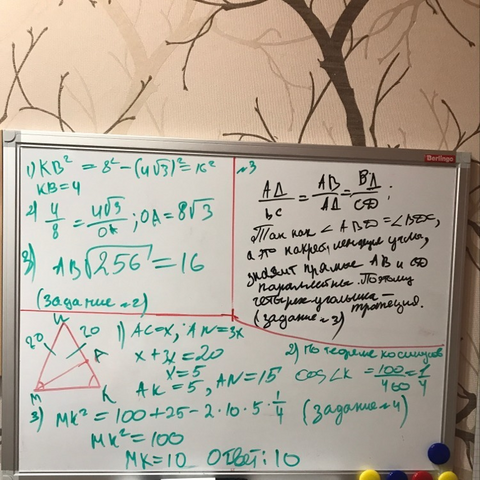 Berlingo
1) KB² = 8² - (4√3)² = 16²
KB = 4
2) 4/8 = 4√3/OA ; OA = 8√3
3) AB √256 = 16
(задание №2)
№3
АД/bc = АВ/АД = ВД/СД ;
Так как ∠ АВD = ∠ВDC,
а это накрест лежащие углы,
значит прямые АВ и СD
параллельны. Поэтому
четырёхугольник
трапеция.
(задание №3)
20 20
A
M K
1) AC=x, AN=3x
x + 3x = 20
x = 5
AK = 5, AN = 15
2) По теореме косинусов
cos∠K = 100/400 = 1/4
3) MK² = 100 + 25 - 2·10·5·1/4 (задание №4)
MK² = 100
MK = 10 Ответ: 10